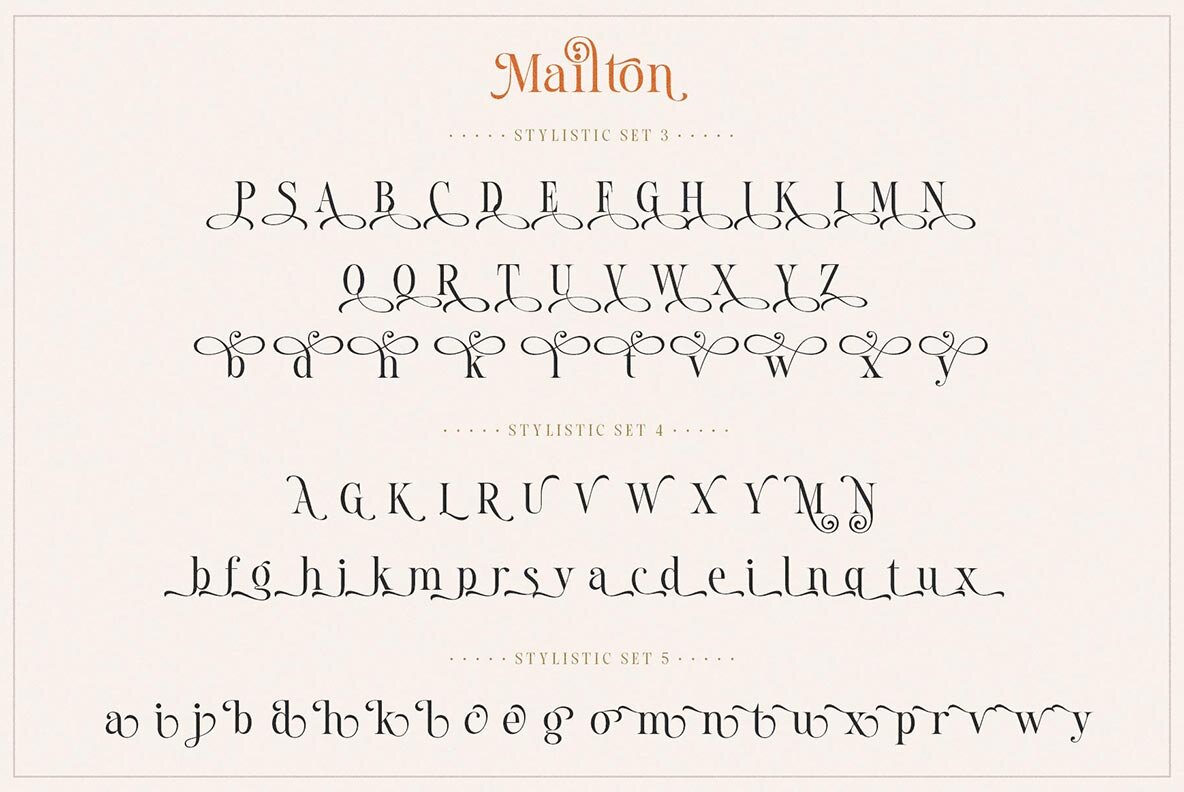 Mailton
· · · · · STYLISTIC SET 3 · · · · ·
P S A B C D E F G H I K J M N
O Q R T U V W X Y Z
b d h k l t v w x y
· · · · · STYLISTIC SET 4 · · · · ·
A G K L R U V W X Y M N
b f g h j k m p r s y a c d e i l n q t u x
· · · · · STYLISTIC SET 5 · · · · ·
a i j b d h k l c e g o m n t u x p r v w y